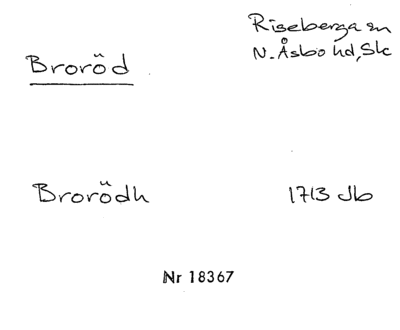 Riseberga sn
Broröd
N. Åsbo hd, Sk
Brorödh
1713 Jb
Nr 18367